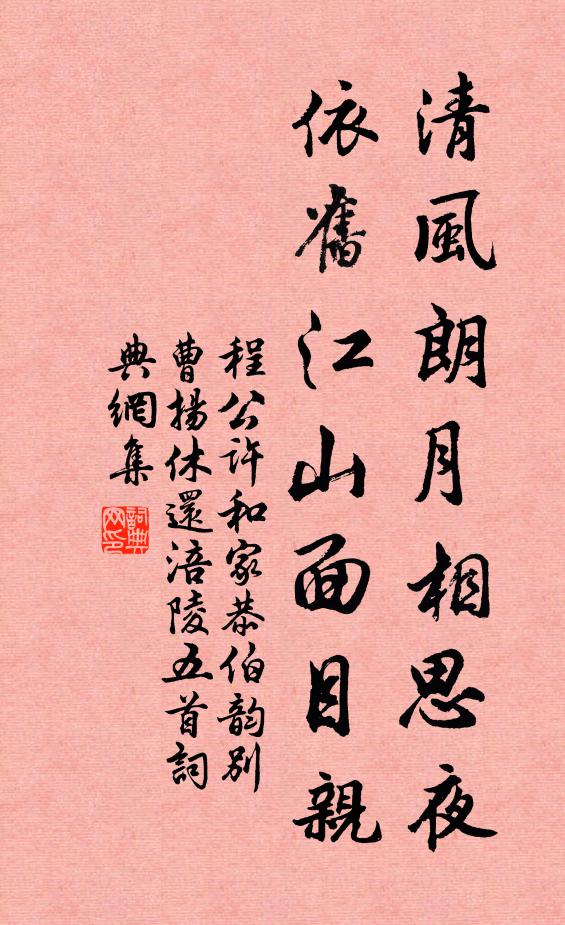 清風朗月相思夜
依舊江山面目親
程公許和家恭伯韵别
曹揚休還涪陵五首詞
典網集
詞典网印